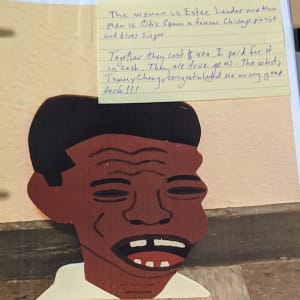 The woman is Estee Lauder and the
Man is Otis Spann a famous Chicago pianist
and blues singer.
Together they cost $400. I paid for it
in cash. They are true gems. The artist,
Tommy Cheng, congratulated me on my good
taste!!!